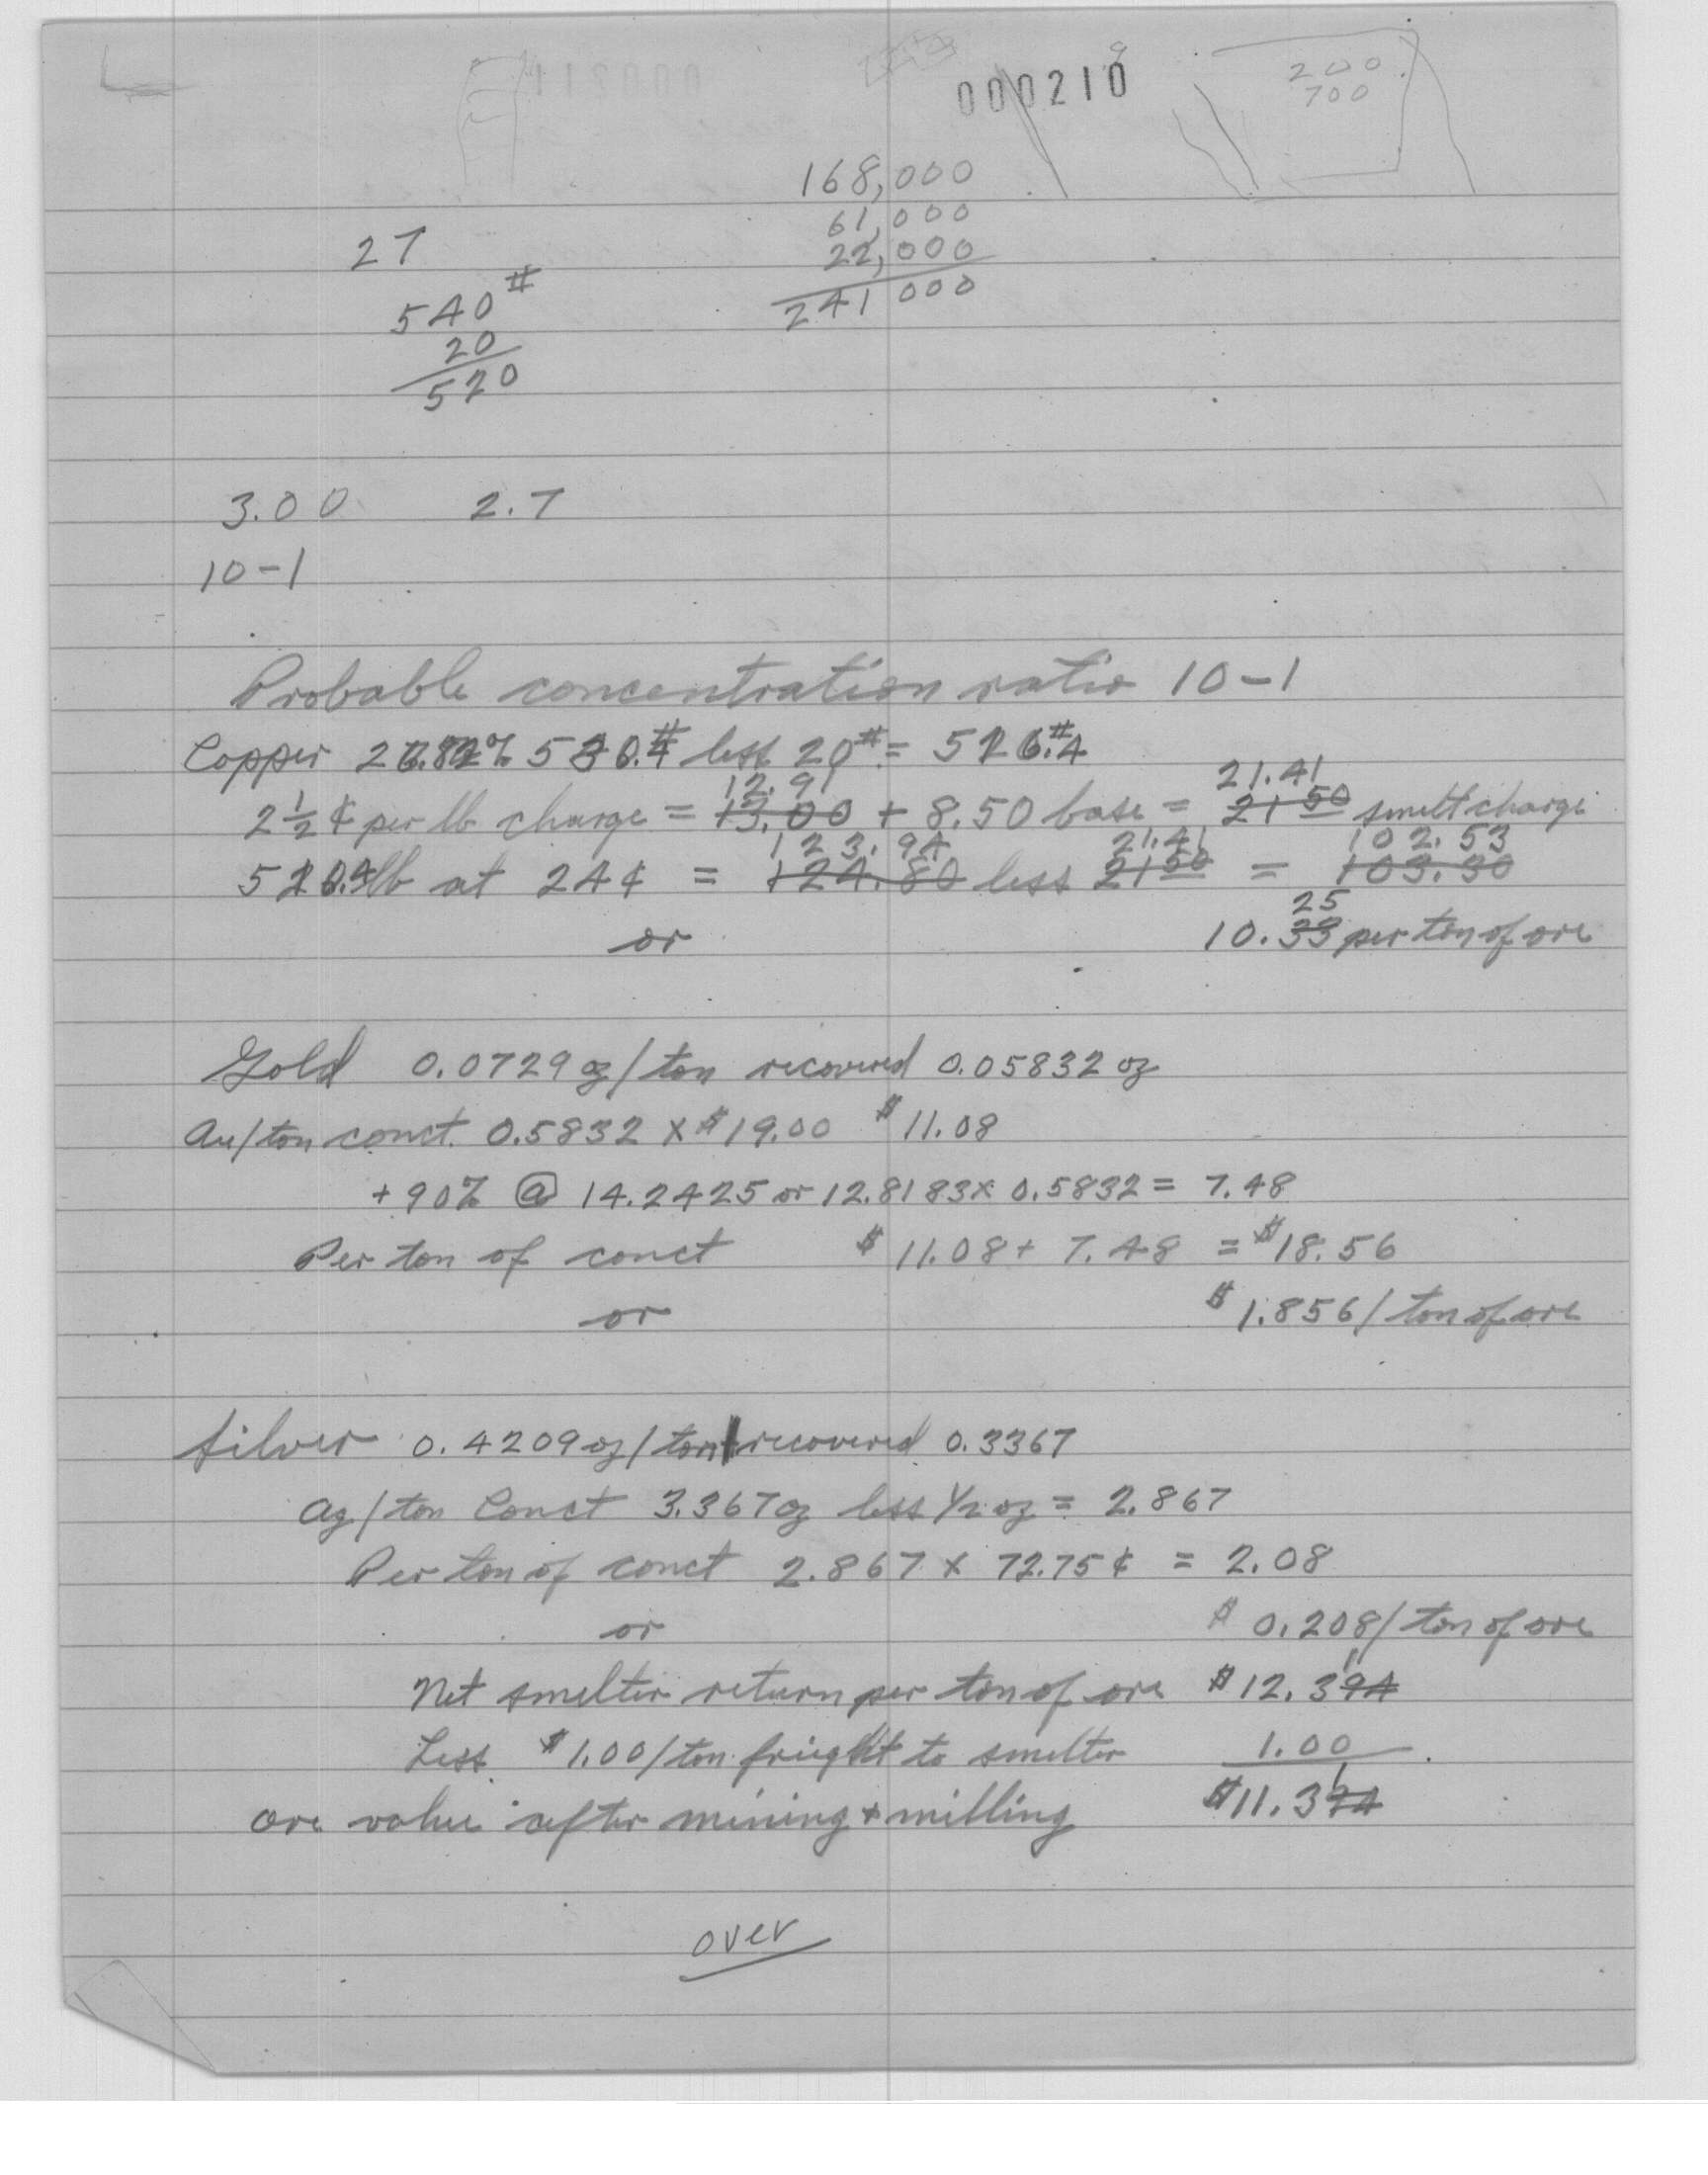 000210
9
200
700
168,000
61,000
22,000
241000
27
540#
20
520
3.00 2.7
10-1
Probable concentration ratio 10-1
Copper 26.82% 536.4# less 20# = 516.4#
12.91 21.41
2½¢ per lb charge = 13.00 + 8.50 base = 21 50 smelt charge
123.94 21.41 102.53
516.4lb at 24¢ = 124.80 less 21 50 = 103.30
25
or 10.33 per ton of ore
Gold 0.0729 oz/ton recovered 0.05832 oz
Au/ton conct. 0.5832 x $19.00 $11.08
+90% @ 14.2425 or 12.8183 x 0.5832 = 7.48
Per ton of conct $11.08 + 7.48 = $18.56
or $1.856/ton of ore
Silver 0.4209 oz/ton recovered 0.3367
Ag/ton Conct 3.367 oz less ½ oz = 2.867
Per ton of conct 2.867 x 72.75¢ = 2.08
or $0.208/ton of ore
Net smelter return per ton of ore $12.394
Less $1.00/ton frieght to smelter 1.00
ore value after mining + milling $11.394
over